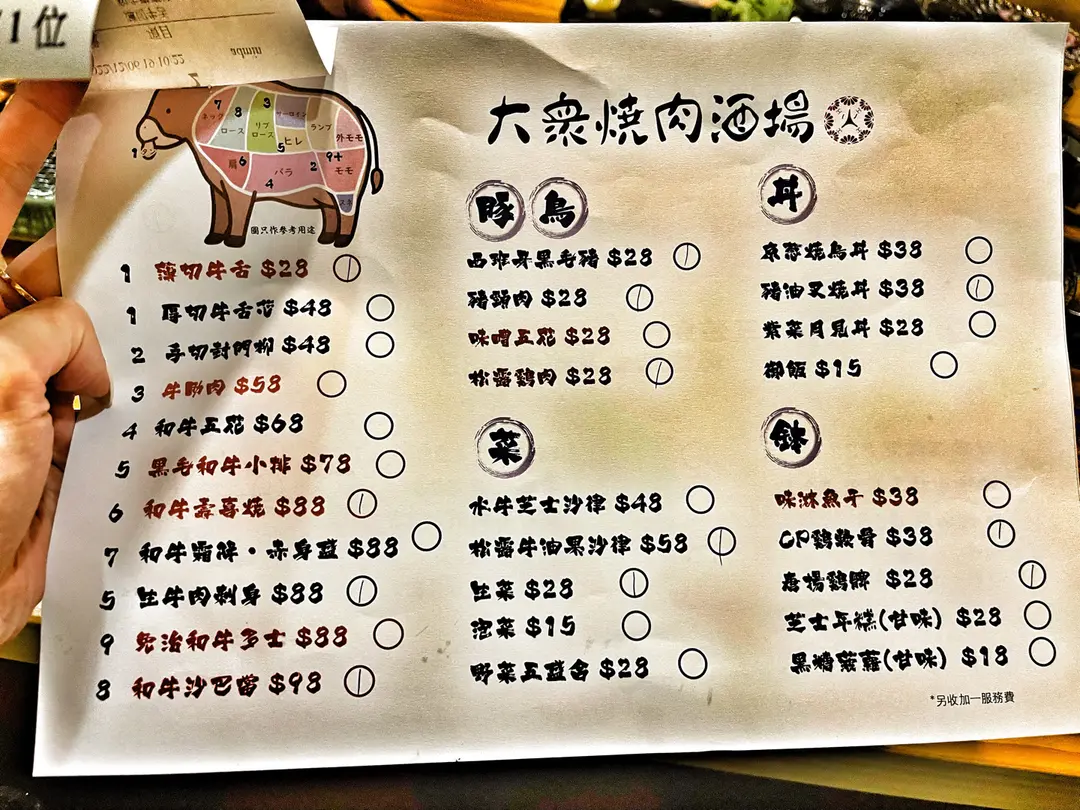 /1 位
22/12/06 19:10:22
大衆焼肉酒場
7 ネック
8 ロース
3 リブロース
サーロイン
5 ヒレ
ランプ
外モモ
1 タン
肩 6
バラ 4
2
9+ モモ
スネ
圖只作參考用途
1 薄切牛舌 $28
1 厚切牛舌芯 $48
2 手切封門柳 $48
3 牛肋肉 $58
4 和牛五花 $68
5 黑毛和牛小排 $78
6 和牛壽喜燒 $88
7 和牛霜降・赤身盛 $88
5 生牛肉刺身 $88
9 免治和牛多士 $88
8 和牛沙巴翁 $98
豚 鳥
西班牙黑毛豬 $28
豬頸肉 $28
味噌五花 $28
松露鷄肉 $28
菜
水牛芝士沙律 $48
松露牛油果沙律 $58
生菜 $28
泡菜 $15
野菜五盛合 $28
丼
京葱燒鳥丼 $38
豬油叉燒丼 $38
紫菜月見丼 $28
御飯 $15
鉢
味淋魚干 $38
CP鷄軟骨 $38
唐揚鷄髀 $28
芝士年糕(甘味) $28
黑糖菠蘿(甘味) $18
*另收加一服務費